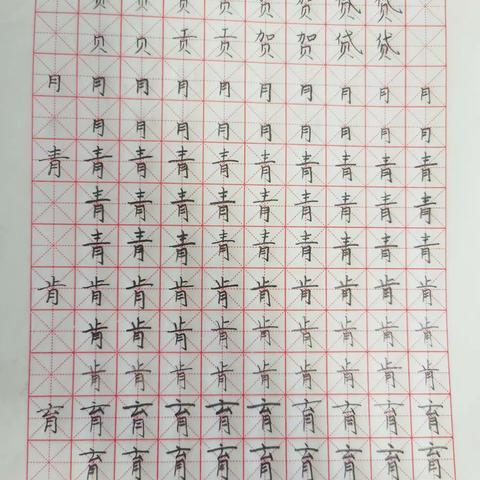 贝 贝 贡 贡 贺 贺 贷 贷
贝 贝 贡 贡 贺 贺 贷 贷
月 月 月 月 月 月 月 月 月 月
月 月 月 月 月 月 月 月 月
青 青 青 青 青 青 青 青 青 青
青 青 青 青 青 青 青 青 青
青 青 青 青 青 青 青 青 青
肯 肯 肯 肯 肯 肯 肯 肯 肯 肯
肯 肯 肯 肯 肯 肯 肯 肯 肯
肯 肯 肯 肯 肯 肯 肯 肯 肯
育 育 育 育 育 育 育 育 育 育
育 育 育 育 育 育 育 育 育